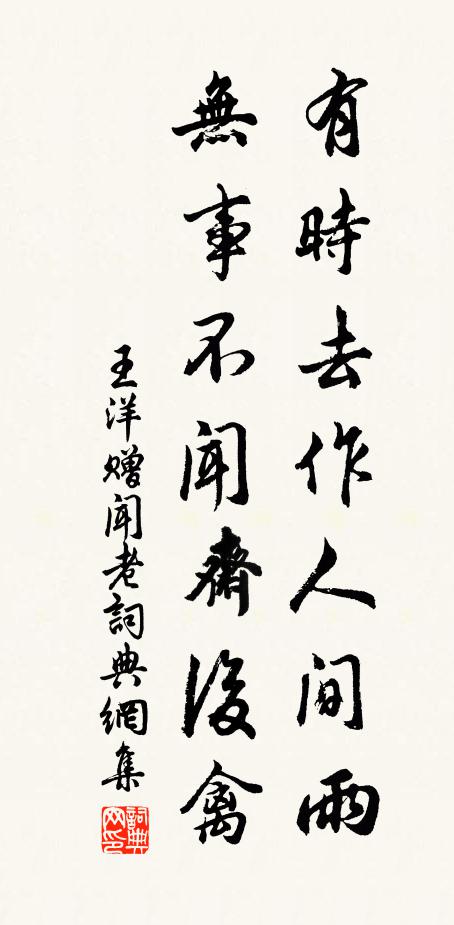 有時去作人間雨
無事不聞齋後禽
王洋赠聞老詞典網集
詞典网印